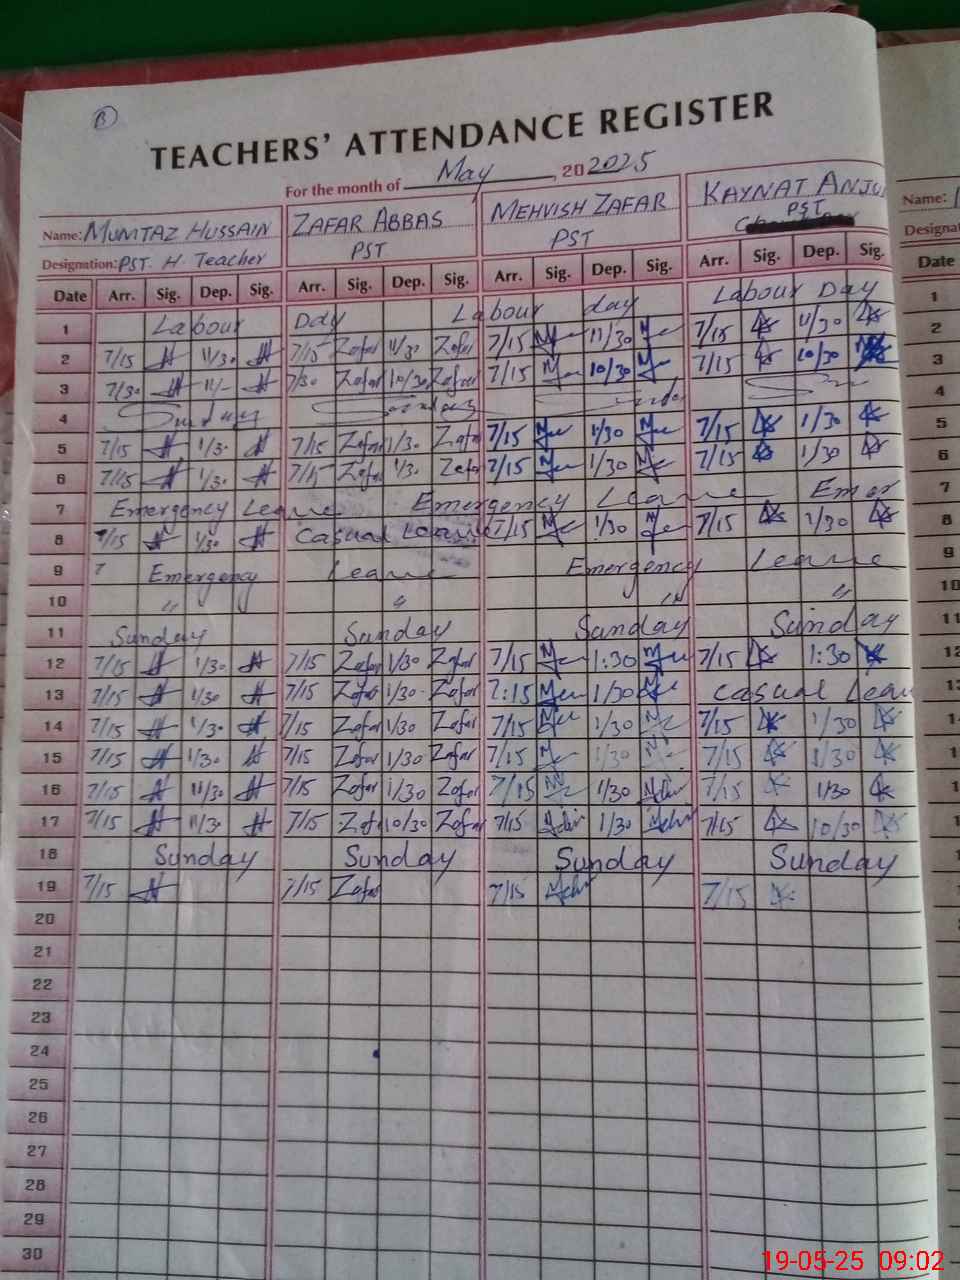 B
TEACHERS' ATTENDANCE REGISTER
For the month of May, 20 2025
Name: MUMTAZ HUSSAIN ZAFAR ABBAS MEHVISH ZAFAR KAYNAT ANJU Name:
Designation: PST. H. Teacher PST PST PST Designat
Date Arr. Sig. Dep. Sig. Arr. Sig. Dep. Sig. Arr. Sig. Dep. Sig. Arr. Sig. Dep. Sig. Date
1 Labour Day Labour day Labour Day 1
2 7/15 11/30 7/15 Zafar 11/30 Zafar 7/15 11/30 7/15 11/30 2
3 7/30 11/- 7/30 Zafar 10/30 Zafar 7/15 10/30 7/15 10/30 3
4 Sunday Sunday 4
5 7/15 1/30 7/15 Zafar 1/30 Zafar 7/15 1/30 7/15 1/30 5
6 7/15 1/30 7/15 Zafar 1/30 Zafar 7/15 1/30 7/15 1/30 6
7 Emergency Leave Emergency Leave Emer 7
8 7/15 1/30 Casual Leave 7/15 1/30 7/15 1/30 8
9 7 Emergency Leave Emergency Leave 9
10 " " " " 10
11 Sunday Sunday Sunday Sunday 11
12 7/15 1/30 7/15 Zafar 1/30 Zafar 7/15 1:30 7/15 1:30 12
13 7/15 1/30 7/15 Zafar 1/30 Zafar 7:15 1/30 Casual Leav 13
14 7/15 1/30 7/15 Zafar 1/30 Zafar 7/15 1/30 7/15 1/30
15 7/15 1/30 7/15 Zafar 1/30 Zafar 7/15 1/30 7/15 1/30
16 7/15 11/30 7/15 Zafar 1/30 Zafar 7/15 1/30 7/15 1/30
17 7/15 11/30 7/15 Zafar 10/30 Zafar 7/15 1/30 7/15 10/30
18 Sunday Sunday Sunday Sunday
19 7/15 7/15 Zafar 7/15 7/15
20
21
22
23
24
25
26
27
28
29
30
19-05-25 09:02